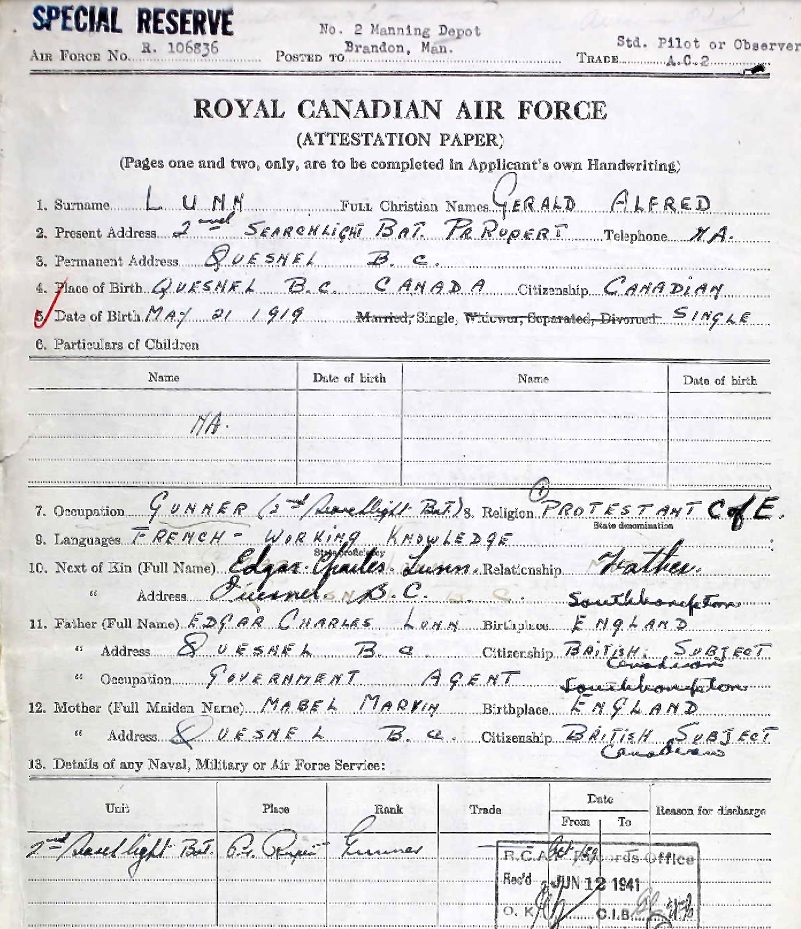 SPECIAL RESERVE
No. 2 Manning Depot
Brandon, Man.
Std. Pilot or Observer
A.C.2
AIR FORCE NO. R. 106836 POSTED TO TRADE
ROYAL CANADIAN AIR FORCE
(ATTESTATION PAPER)
(Pages one and two, only, are to be completed in Applicant's own Handwriting)
1. Surname LUNN FULL Christian Names GERALD ALFRED
2. Present Address 2nd SEARCHLIGHT BAT. PR. RUPERT Telephone NA.
3. Permanent Address QUESNEL B.C.
4. Place of Birth QUESNEL B.C. CANADA Citizenship CANADIAN
5. Date of Birth MAY 21 1919 Married, Single, Widower, Separated, Divorced SINGLE
6. Particulars of Children
Name Date of birth Name Date of birth
NA.
7. Occupation GUNNER (2nd Searchlight Bat.) 8. Religion PROTESTANT C of E.
State denomination
9. Languages FRENCH - WORKING KNOWLEDGE
State proficiency
10. Next of Kin (Full Name) Edgar Charles Lunn Relationship Father.
" Address Quesnel B.C.
Southhampton
11. Father (Full Name) EDGAR CHARLES LUNN Birthplace ENGLAND
" Address QUESNEL B.C. Citizenship BRITISH SUBJECT
Canadian
" Occupation GOVERNMENT AGENT
Southhampton
12. Mother (Full Maiden Name) MABEL MARVIN Birthplace ENGLAND
" Address QUESNEL B.C. Citizenship BRITISH SUBJECT
Canadian
13. Details of any Naval, Military or Air Force Service:
Unit Place Rank Trade Date From To Reason for discharge
2nd Searchlight Bat. Pr. Rupert Gunner
R.C.A.F. Records Office
Rec'd JUN 12 1941
O.K. C.I.B.